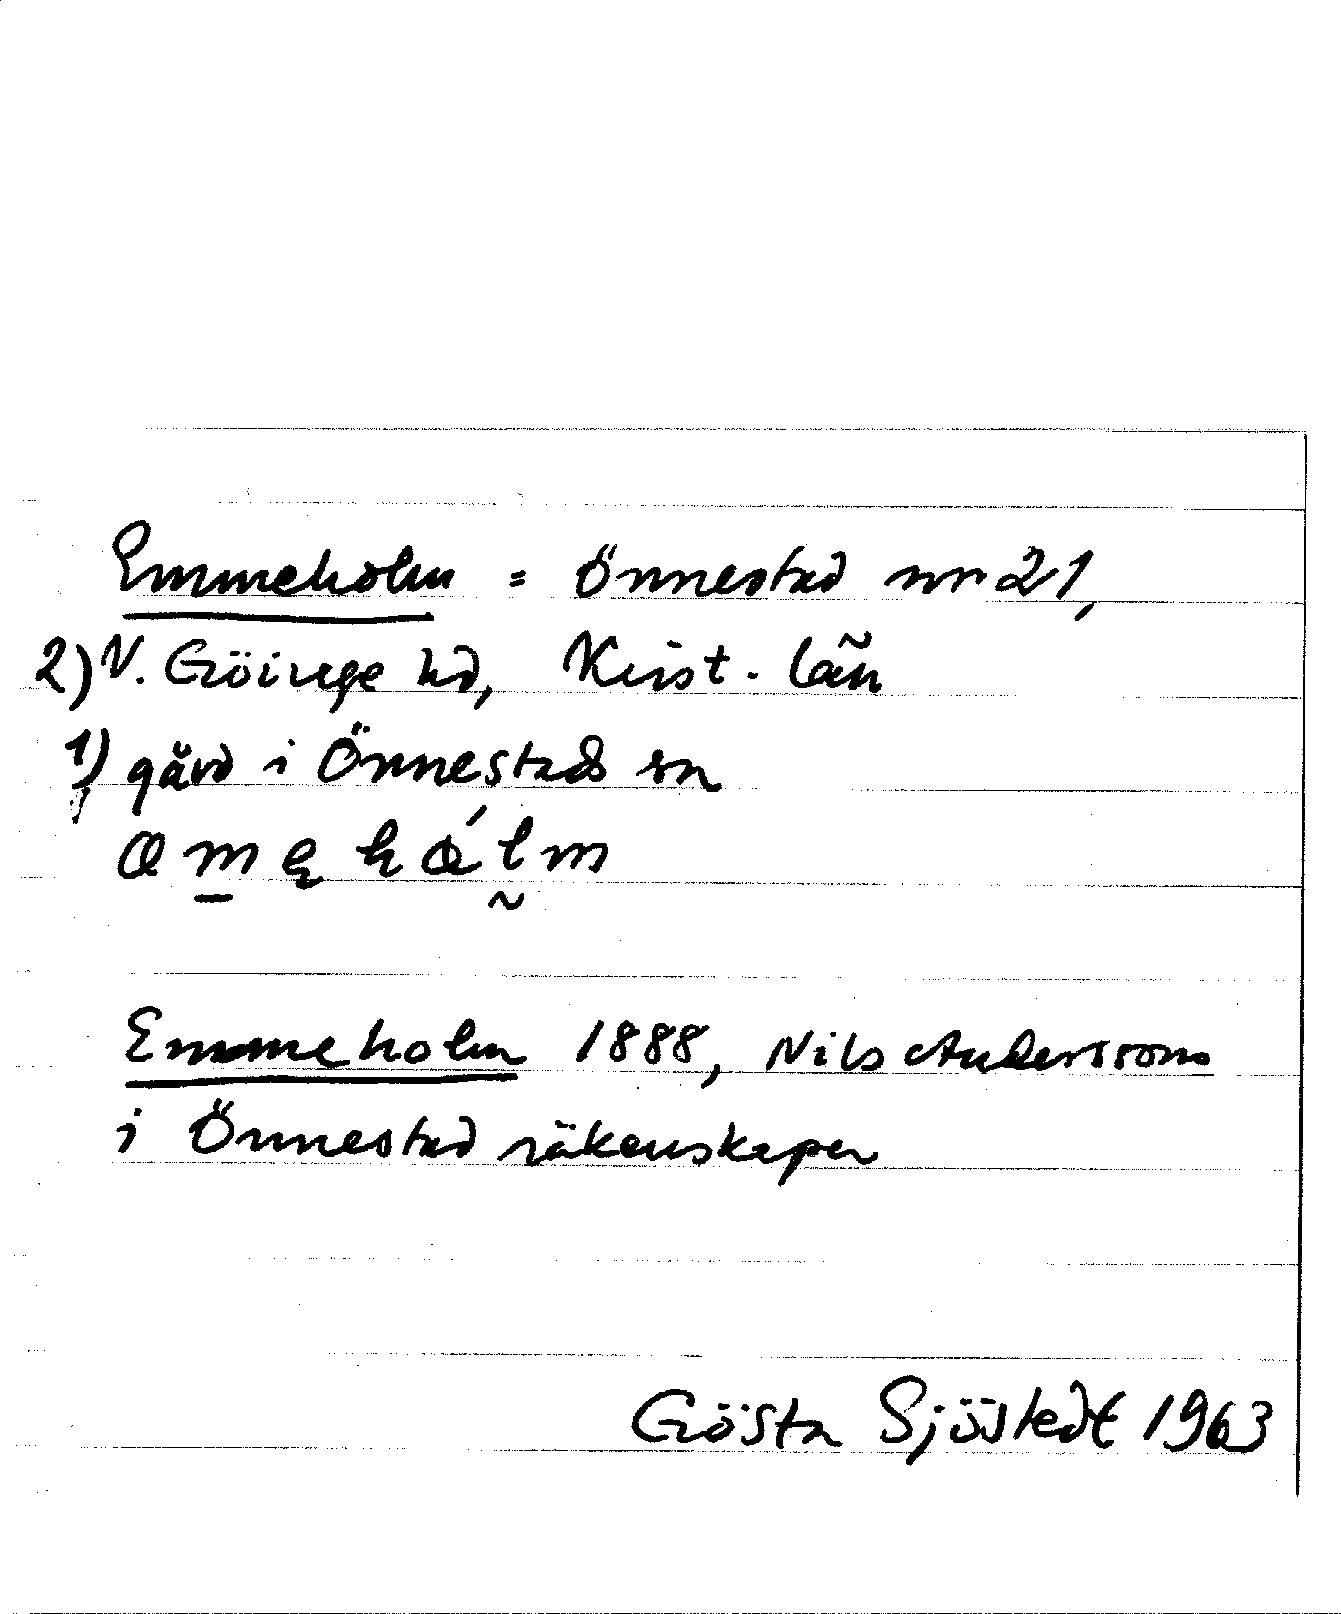 Emmeholm = Önnestad nr 21,
2) V. Göinge hd, Krist. län
1) gård i Önnestads sn
Emmeholm 1888, Nils Anderssons
i Önnestad räkenskaper
Gösta Sjöstedt 1963